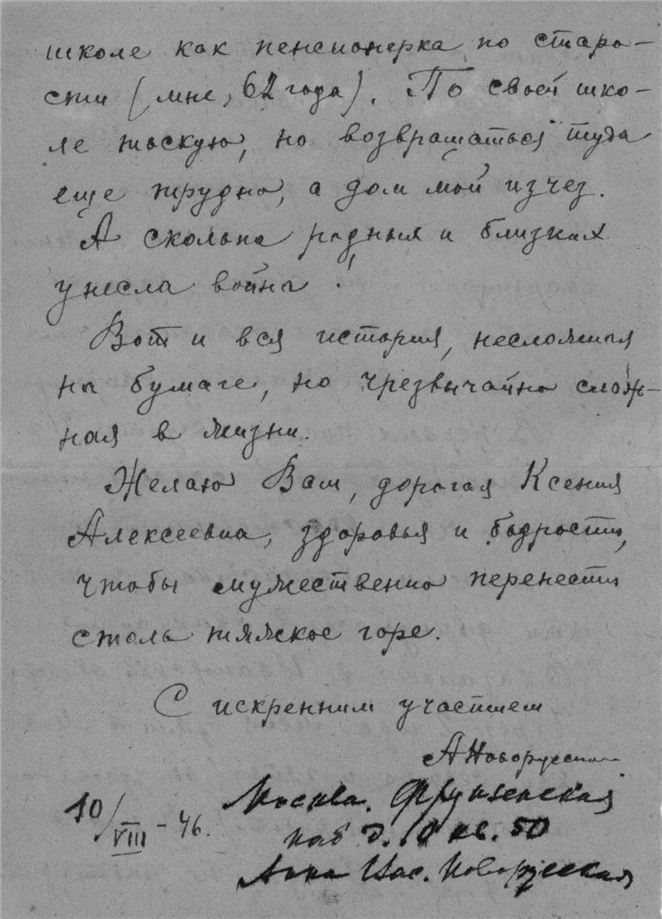 школе как пенсионерка по старо-
сти (мне, 62 года). По своей шко-
ле тоскую, но возвращаться туда
еще трудно, а дом мой изчез.
А сколько родных и близких
унесла война!
Вот и вся история, несложная
на бумаге, но чрезвычайно слож-
ная в жизни.
Желаю Вам, дорогая Ксения
Алексеевна, здоровья и бодрости,
чтобы мужественно перенести
столь тяжкое горе.
С искренним участием
А Новорусская
10/VIII - 46.
Москва. Фрунзенская
наб д. 10 кв. 50
Анна Новорусская